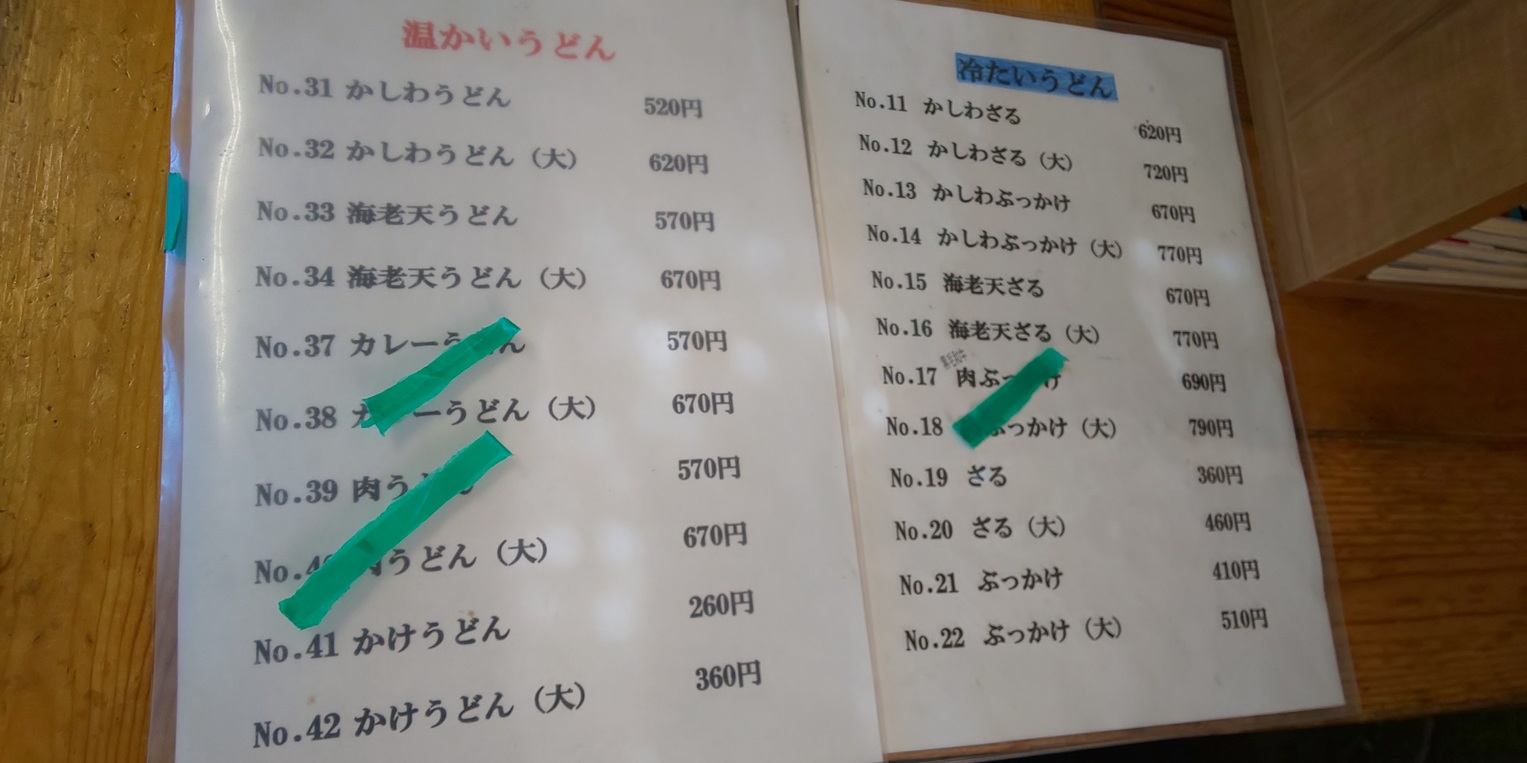 温かいうどん
No.31 かしわうどん 520円
No.32 かしわうどん（大） 620円
No.33 海老天うどん 570円
No.34 海老天うどん（大） 670円
No.37 カレーうどん 570円
No.38 カレーうどん（大） 670円
No.39 肉うどん 570円
No.40 肉うどん（大） 670円
No.41 かけうどん 260円
No.42 かけうどん（大） 360円
冷たいうどん
No.11 かしわざる 620円
No.12 かしわざる（大） 720円
No.13 かしわぶっかけ 670円
No.14 かしわぶっかけ（大） 770円
No.15 海老天ざる 670円
No.16 海老天ざる（大） 770円
No.17 肉ぶっかけ 690円
No.18 ぶっかけ（大） 790円
No.19 ざる 360円
No.20 ざる（大） 460円
No.21 ぶっかけ 410円
No.22 ぶっかけ（大） 510円